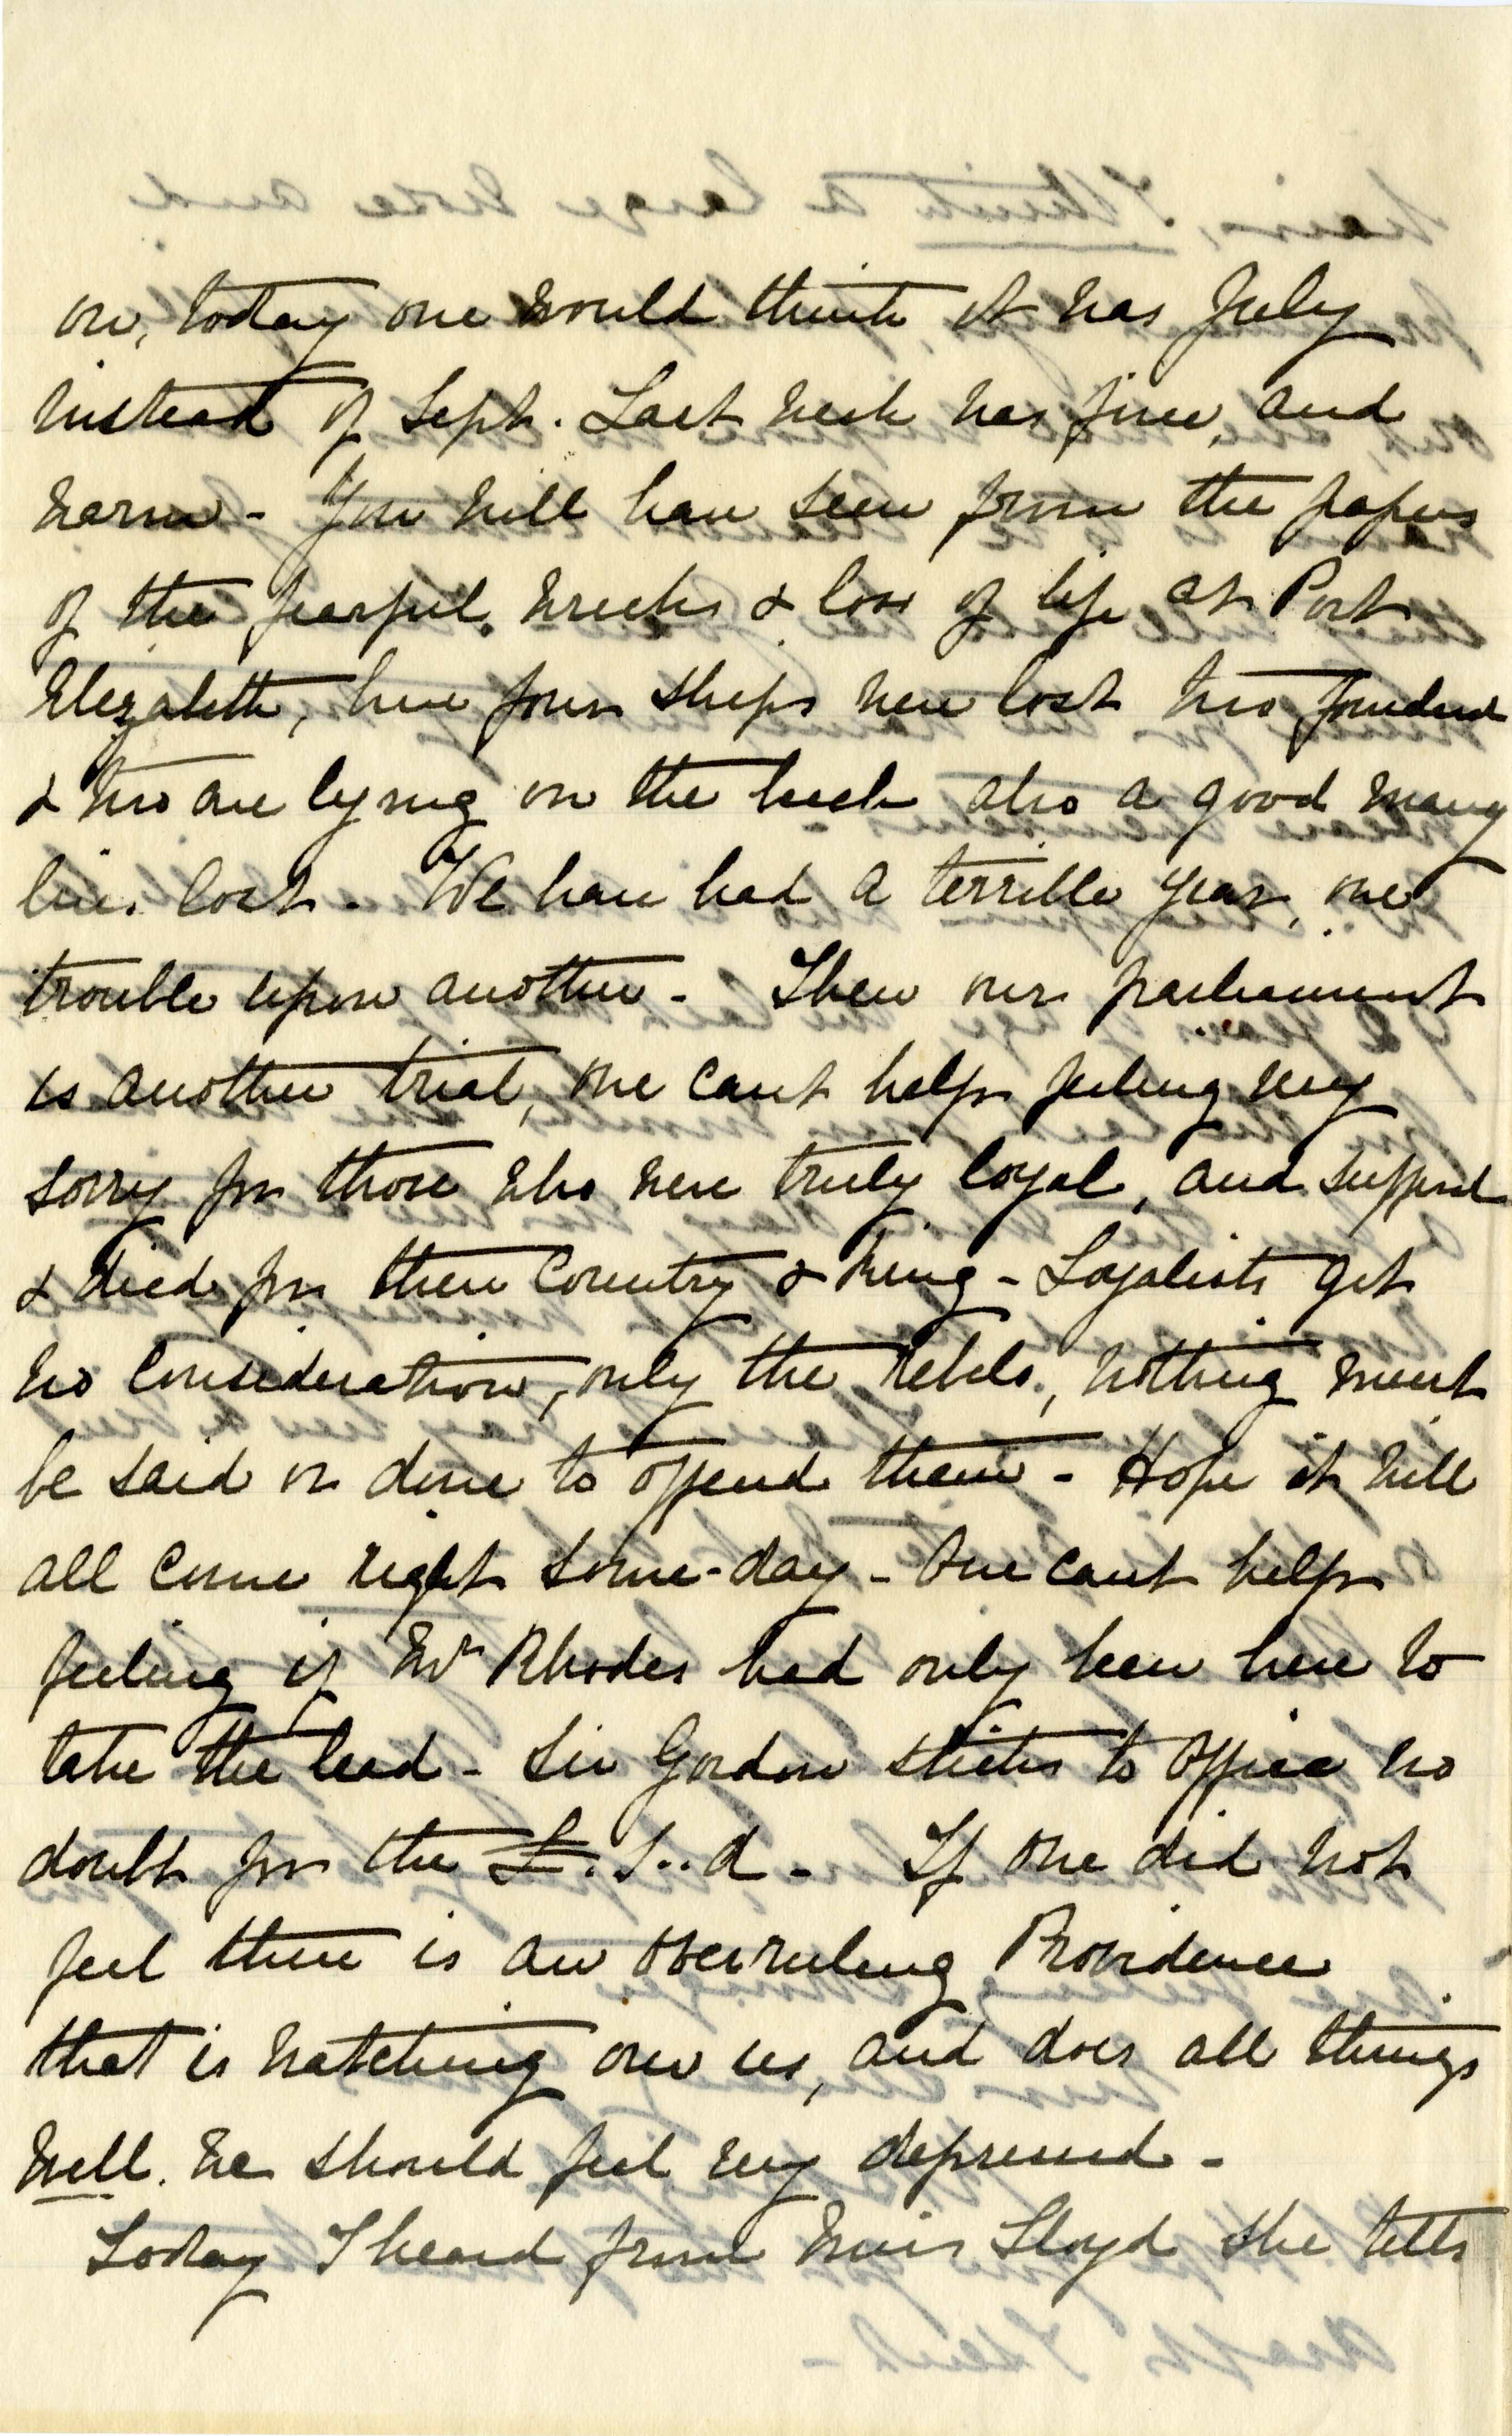 on, today one would think it was July
instead of Sept. Last week was fine, and
warm - You will have seen from the papers
of the fearful wrecks & loss of life at Port
Elizabeth, here four ships were lost two foundered
& two are lying on the beach also a good many
lives lost - We have had a terrible year, one
trouble upon another - Then our parliament
is another trial, one cant help feeling very
sorry for those who were truly loyal, and suffered
& died for their Country & King - Loyalists get
no consideration, only the rebels, nothing must
be said or done to offend them - Hope it will
all come right some-day - One cant help
feeling if Mr Rhodes had only been here to
take the lead - Sir Gordon sticks to office no
doubt for the £. s..d - If one did not
feel there is an overruling Providence
that is watching over us, and does all things
well. we should feel very depressed -
Today I heard from Miss Lloyd she tells